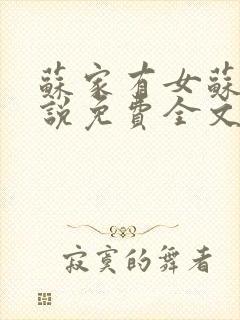 蘇家有女蘇
說免費全文
寂寞的舞者